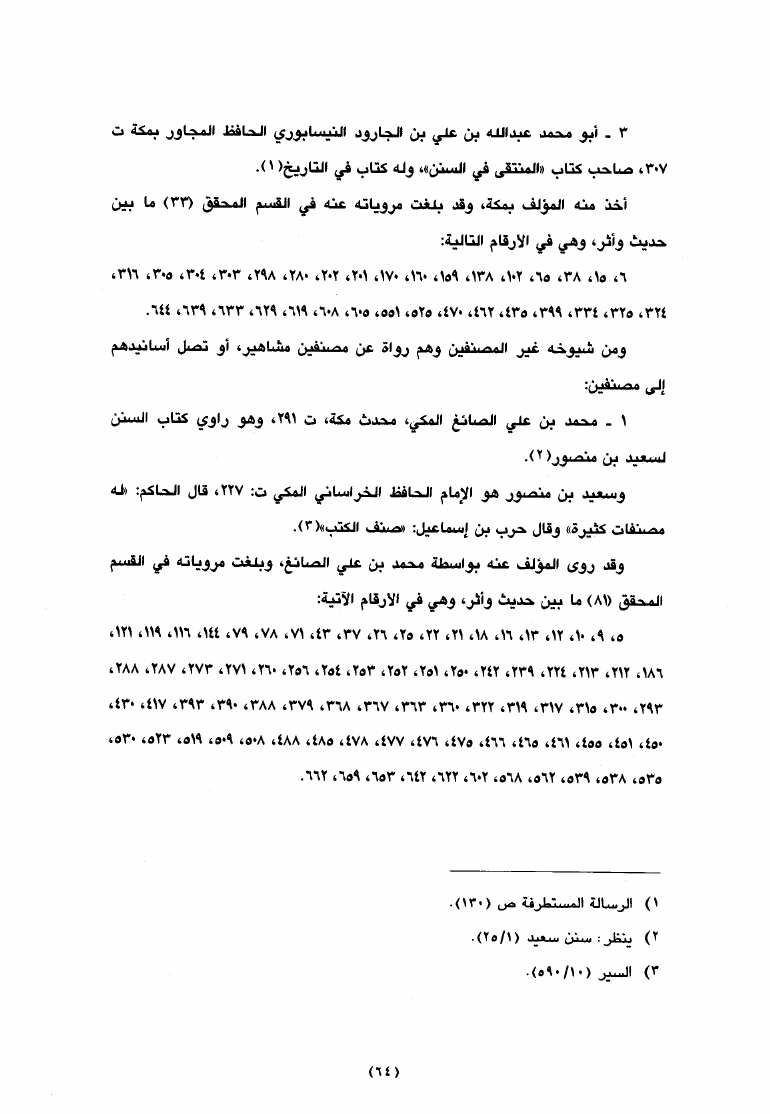 ٣ ـ أبو محمد عبدالله بن علي بن الجارود النيسابوري الحافظ المجاور بمكة ت
٣٠٧، صاحب كتاب «المنتقى في السنن»، وله كتاب في التاريخ(١).
أخذ منه المؤلف بمكة، وقد بلغت مروياته عنه في القسم المحقق (٣٣) ما بين
حديث وأثر، وهي في الأرقام التالية:
٦، ١٥، ٣٨، ٦٥، ١٠٢، ١٣٨، ١٥٩، ١٦٠، ١٧٠، ٢٠١، ٢٠٢، ٢٨٠، ٢٩٨، ٣٠٣، ٣٠٤، ٣٠٥، ٣١٦،
٣٢٤، ٣٢٥، ٣٣٤، ٣٩٩، ٤٣٥، ٤٦٢، ٤٧٠، ٥٢٥، ٥٥١، ٦٠٥، ٦٠٨، ٦١٩، ٦٢٩، ٦٣٣، ٦٣٩، ٦٤٤.
ومن شيوخه غير المصنفين وهم رواة عن مصنفين مشاهير، أو تصل أسانيدهم
إلى مصنفين:
١ ـ محمد بن علي الصائغ المكي، محدث مكة، ت ٢٩١، وهو راوي كتاب السنن
لسعيد بن منصور(٢).
وسعيد بن منصور هو الإمام الحافظ الخراساني المكي ت: ٢٢٧، قال الحاكم: «له
مصنفات كثيرة» وقال حرب بن إسماعيل: «صنف الكتب»(٣).
وقد روى المؤلف عنه بواسطة محمد بن علي الصائغ، وبلغت مروياته في القسم
المحقق (٨١) ما بين حديث وأثر، وهي في الأرقام الآتية:
٥، ٩، ١٠، ١٢، ١٣، ١٦، ١٨، ٢١، ٢٢، ٢٥، ٢٦، ٣٧، ٤٣، ٧١، ٧٨، ٧٩، ١٤٤، ١١٦، ١١٩، ١٢١،
١٨٦، ٢١٢، ٢١٣، ٢٢٤، ٢٣٩، ٢٤٢، ٢٥٠، ٢٥١، ٢٥٢، ٢٥٣، ٢٥٤، ٢٥٦، ٢٦٠، ٢٧١، ٢٧٣، ٢٨٧، ٢٨٨،
٢٩٣، ٣٠٠، ٣١٥، ٣١٧، ٣١٩، ٣٢٢، ٣٦٠، ٣٦٣، ٣٦٧، ٣٦٨، ٣٧٩، ٣٨٨، ٣٩٠، ٣٩٣، ٤١٧، ٤٣٠،
٤٥٠، ٤٥١، ٤٥٥، ٤٦١، ٤٦٥، ٤٦٦، ٤٧٥، ٤٧٦، ٤٧٧، ٤٧٨، ٤٨٥، ٤٨٨، ٥٠٨، ٥٠٩، ٥١٩، ٥٢٣، ٥٣٠،
٥٣٥، ٥٣٨، ٥٣٩، ٥٦٢، ٥٦٨، ٦٠٢، ٦٢٢، ٦٤٢، ٦٥٣، ٦٥٩، ٦٦٢.
١) الرسالة المستطرفة ص (١٣٠).
٢) ينظر: سنن سعيد (٢٥/١).
٣) السير (٥٩٠/١٠).
(٦٤)